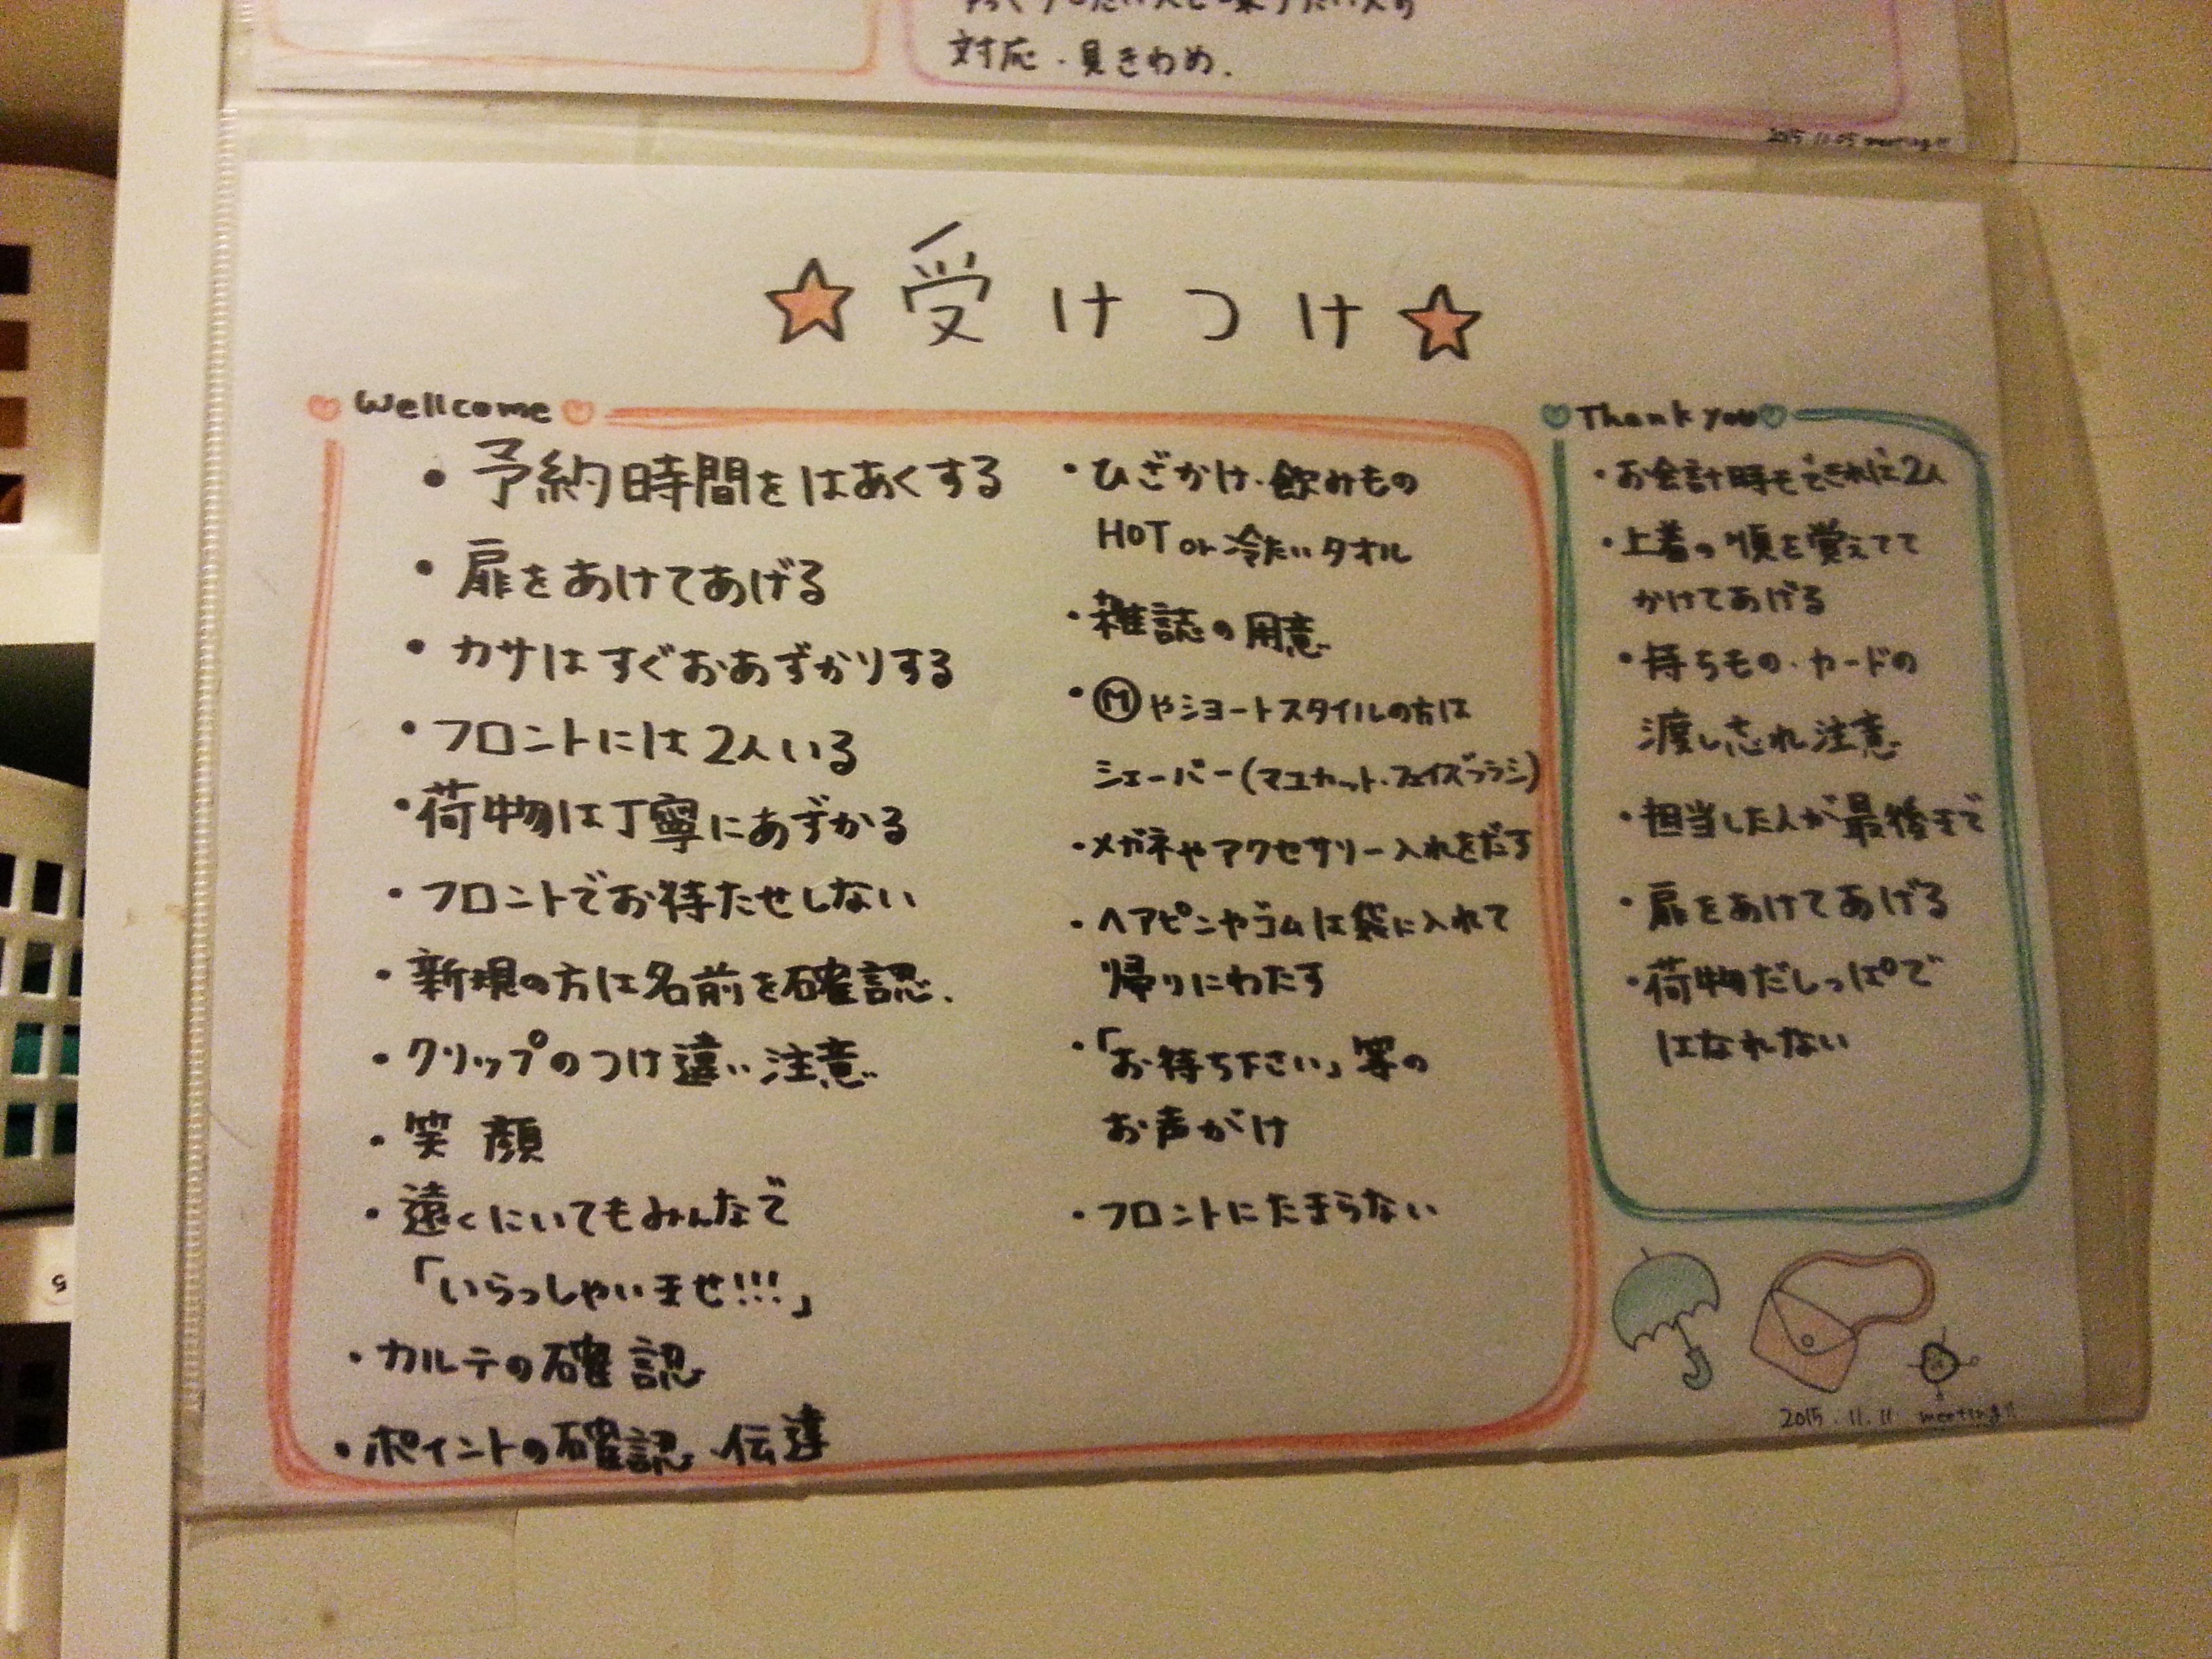 対応・見きわめ.
2015.11.05 meeting!!
☆受けつけ☆
Wellcome
・予約時間をはあくする
・扉をあけてあげる
・カサはすぐおあずかりする
・フロントには2人いる
・荷物は丁寧にあずかる
・フロントでお待たせしない
・新規の方は名前を確認.
・クリップのつけ違い注意
・笑顔
・遠くにいてもみんなで
「いらっしゃいませ!!!」
・カルテの確認
・ポイントの確認、伝達
・ひざかけ・飲みもの
HOT or 冷たいタオル
・雑誌の用意
・Ⓜやショートスタイルの方は
シェーバー(マユカット・フェイズブラシ)
・メガネやアクセサリー入れをだす
・ヘアピンやゴムは袋に入れて
帰りにわたす
・「お待ち下さい」等の
お声がけ
・フロントにたまらない
Thank you
・お会計時もできれば2人
・上着の順を覚えてて
かけてあげる
・持ちもの・カードの
渡し忘れ注意
・担当した人が最後まで
・扉をあけてあげる
・荷物だしっぱで
はなれない
2015.11.11 meeting!!